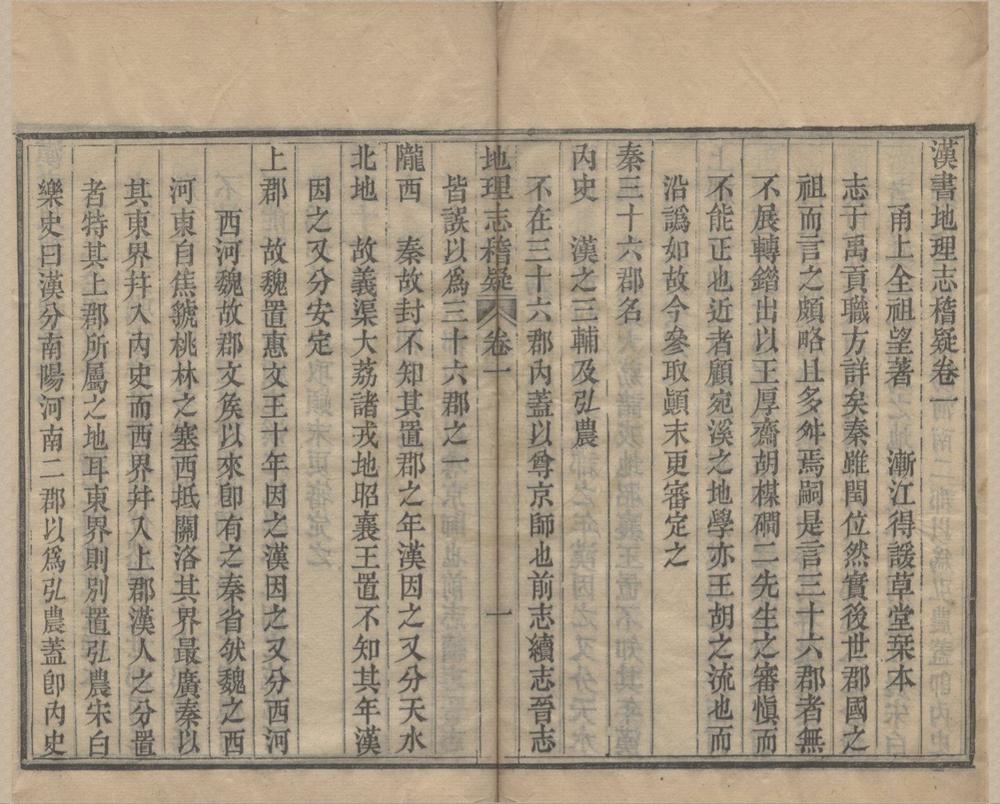 漢書地理志稽疑卷一
甬上全祖望著　漸江得諼草堂栞本
志于禹貢職方詳矣秦雖閏位然實後世郡國之
祖而言之頗略且多舛焉嗣是言三十六郡者無
不展轉錯出以王厚齋胡楳磵二先生之審愼而
不能正也近者顧宛溪之地學亦王胡之流也而
沿譌如故今參取顚末更審定之
秦三十六郡名
內史　漢之三輔及弘農
不在三十六郡內蓋以尊京師也前志續志晉志
地理志稽疑　卷一　一
皆誤以爲三十六郡之一
隴西　秦故封不知其置郡之年漢因之又分天水
北地　故義渠大荔諸戎地昭襄王置不知其年漢
因之又分安定
上郡　故魏置惠文王十年因之漢因之又分西河
西河魏故郡文矦以來卽有之秦省欱魏之西
河東自焦虢桃林之塞西抵關洛其界最廣秦以
其東界幷入內史而西界幷入上郡漢人之分置
者特其上郡所屬之地耳東界則別置弘農宋白
樂史曰漢分南陽河南二郡以爲弘農蓋卽內史